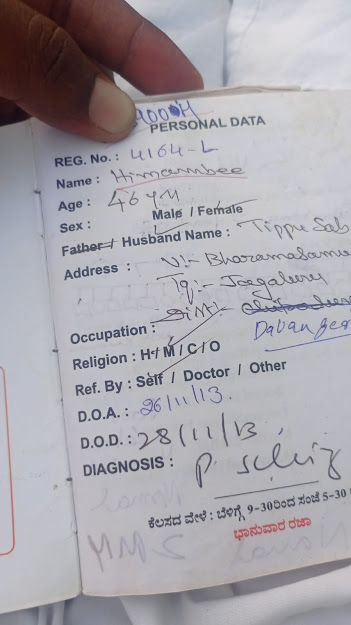 PERSONAL DATA
REG. No. : 4164-L
Name : Himambee
Age : 46 yrs
Sex : Male / Female
Father / Husband Name : Tippu Sab
Address : V:- Bharamasamu
Tq:- Jagalury
Dist:-
Occupation : Davanger
Religion : H / M / C / O
Ref. By : Self / Doctor / Other
D.O.A. : 26/11/13.
D.O.D. : 28/11/13.
DIAGNOSIS : P. schiz
ಕೆಲಸದ ವೇಳೆ : ಬೆಳಿಗ್ಗೆ 9-30ರಿಂದ ಸಂಜೆ 5-30
ಭಾನುವಾರ ರಜಾ